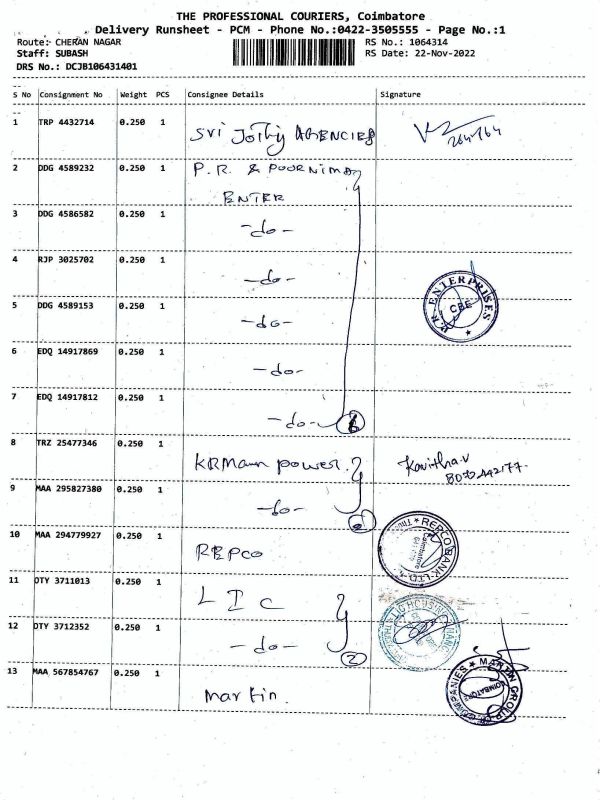 THE PROFESSIONAL COURIERS, Coimbatore
Delivery Runsheet - PCM - Phone No.:0422-3505555 - Page No.:1
Route: CHERAN NAGAR
RS No.: 1064314
Staff: SUBASH
RS Date: 22-Nov-2022
DRS No.: DCJB106431401
S No Consignment No Weight PCS Consignee Details Signature
1 TRP 4432714 0.250 1 Sri Jothi AGENCIES
2 DDG 4589232 0.250 1 P.R. & POORNIMA
ENTER
3 DDG 4586582 0.250 1 -do-
4 RJP 3025702 0.250 1 -do-
5 DDG 4589153 0.250 1 -do-
ENTERPRISES
CBE
6 EDQ 14917869 0.250 1 -do-
7 EDQ 14917812 0.250 1 -do-
8 TRZ 25477346 0.250 1 KRMann power. Kavitha.V
9 MAA 295827380 0.250 1 -do-
10 MAA 294779927 0.250 1 REPCO
REPCO BANK LTD
11 DTY 3711013 0.250 1 LIC
LIC HOUSING
12 DTY 3712352 0.250 1 -do-
2
13 MAA 567854767 0.250 1 Martin.
MARTIN GROUP OF COMPANIES
COIMBATORE